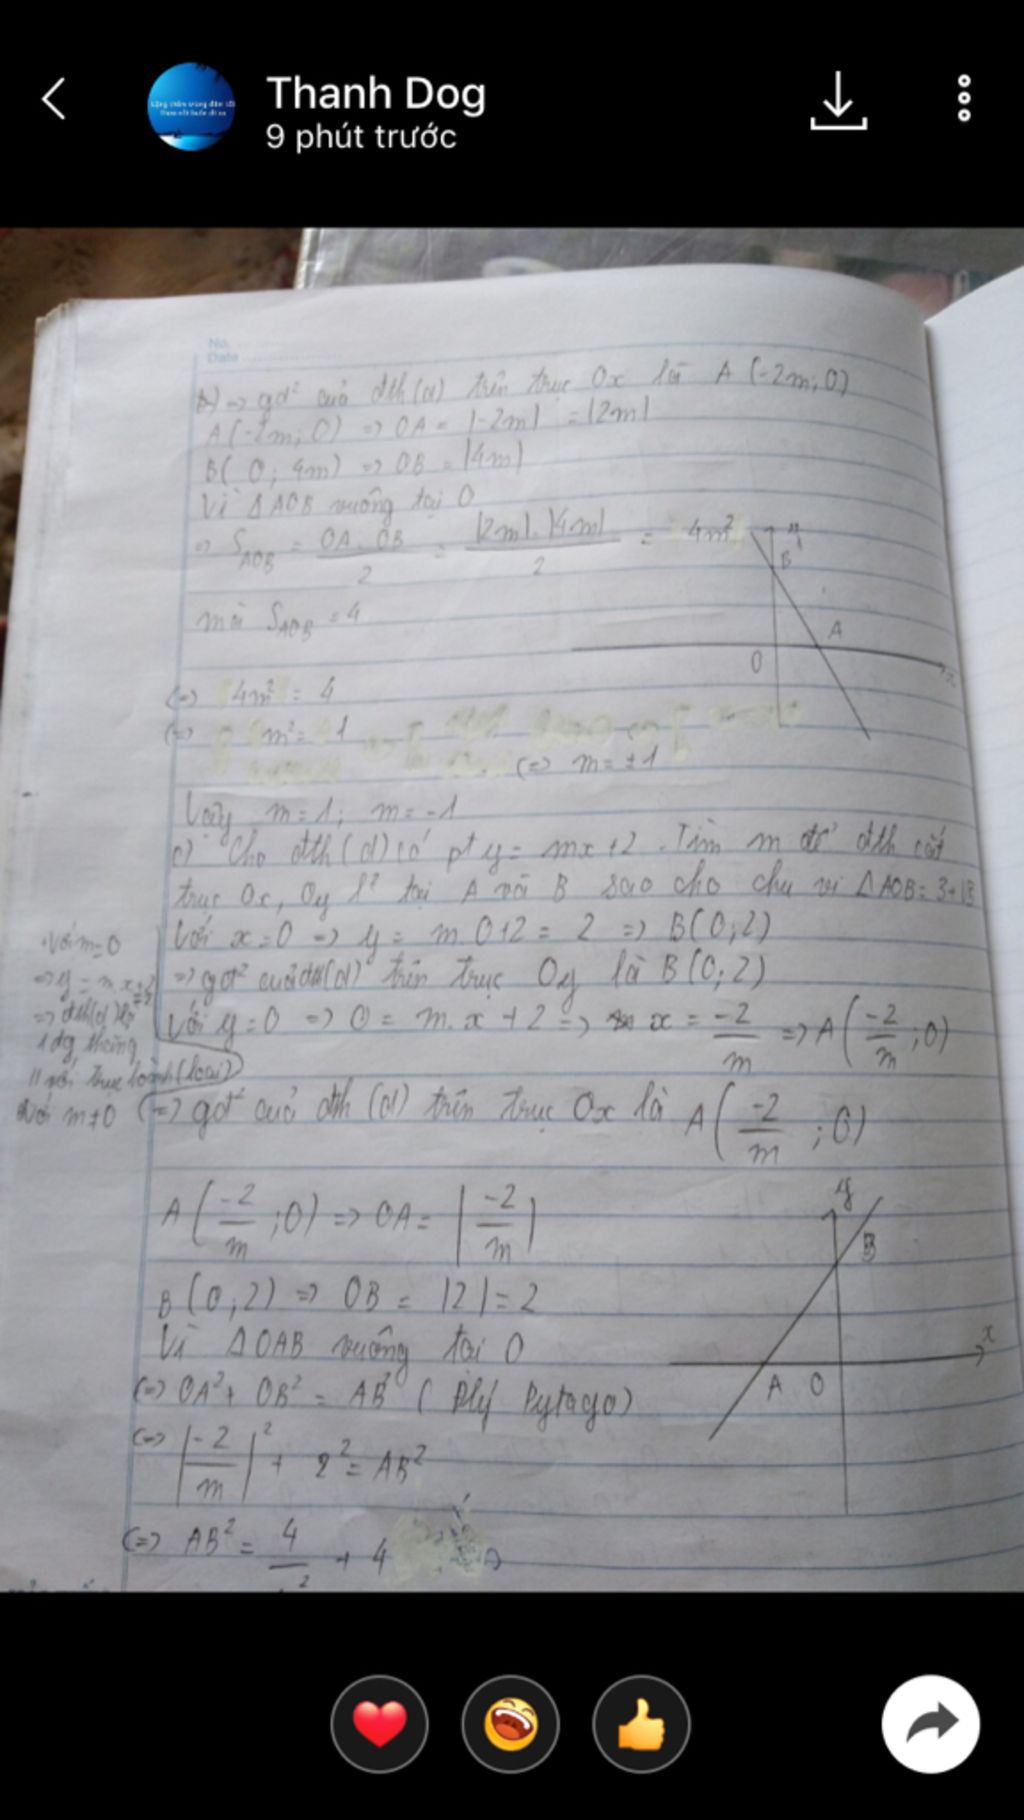 Thanh Dog
9 phút trước
No.
Date
b) => gđ² cuả đth(d) trên trục Ox là A(-2m; 0)
A(-2m; 0) => OA = |-2m| = |2m|
B( 0; 4m) => OB = |4m|
Vì ΔAOB vuông tại O
=> S_AOB = OA.OB/2 = |2m|.|4m|/2 = 4m²
y
B
A
O
x
mà S_AOB = 4
<=> 4m² = 4
<=> m² = 1
<=> m = ±1
Vậy m=1; m=-1
c) Cho đth(d) có pt y= mx+2. Tìm m để đth cắt
trục Ox, Oy tại A và B sao cho chu vi ΔAOB = 3+
Với x=0 => y= m.0+2 = 2 => B(0;2)
=> gđ² cuả đth(d) trên trục Oy là B(0;2)
Với y=0 => 0= m.x+2 => x= -2/m => A(-2/m ;0)
Với m=0
=> y= m.x+2
=> đth(d) là
1 đg thẳng
// với trục hoành (loại)
Với m≠0
=> gđ² cuả đth (d) trên trục Ox là A(-2/m ; 0)
A(-2/m ;0) => OA= |-2/m|
B(0;2) => OB = |2|=2
Vì ΔOAB vuông tại O
<=> OA² + OB² = AB² ( Đlý Pytago)
<=> |-2/m|² + 2² = AB²
<=> AB² = 4/ ² + 4
y
B
x
A O